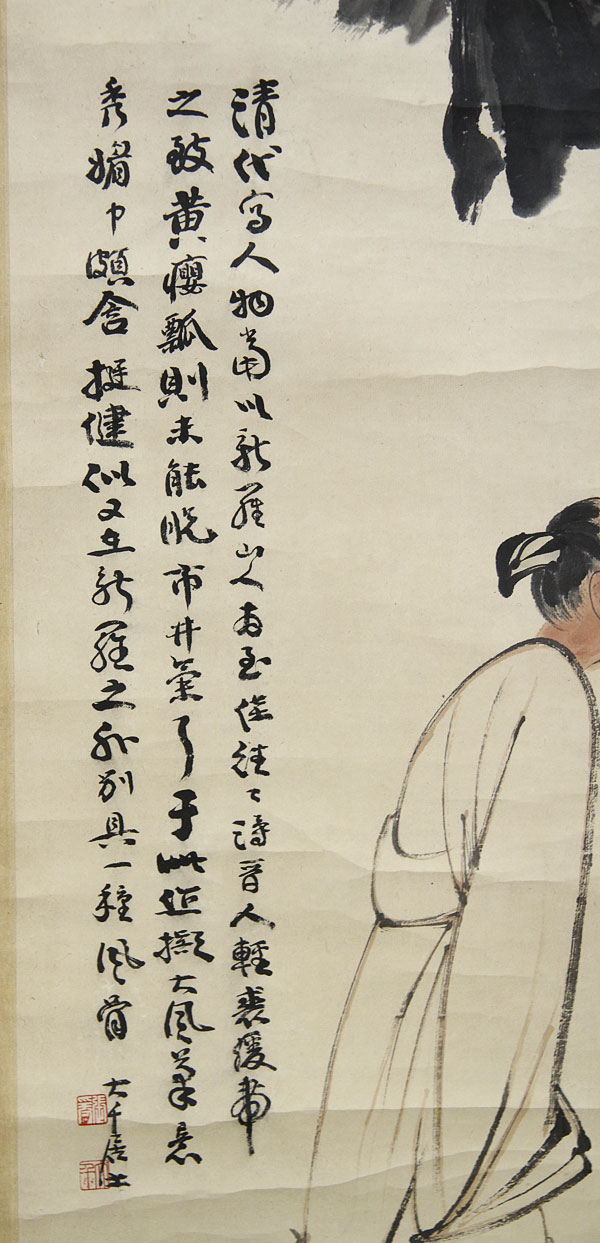 清代寫人物當以新羅山人為至佳往往得晉人輕裘緩帶
之致黃癭瓢則未能脫市井氣了于此近擬大風筆意
秀媚中頗含挺健似又在新羅之外別具一種風骨
大千居士